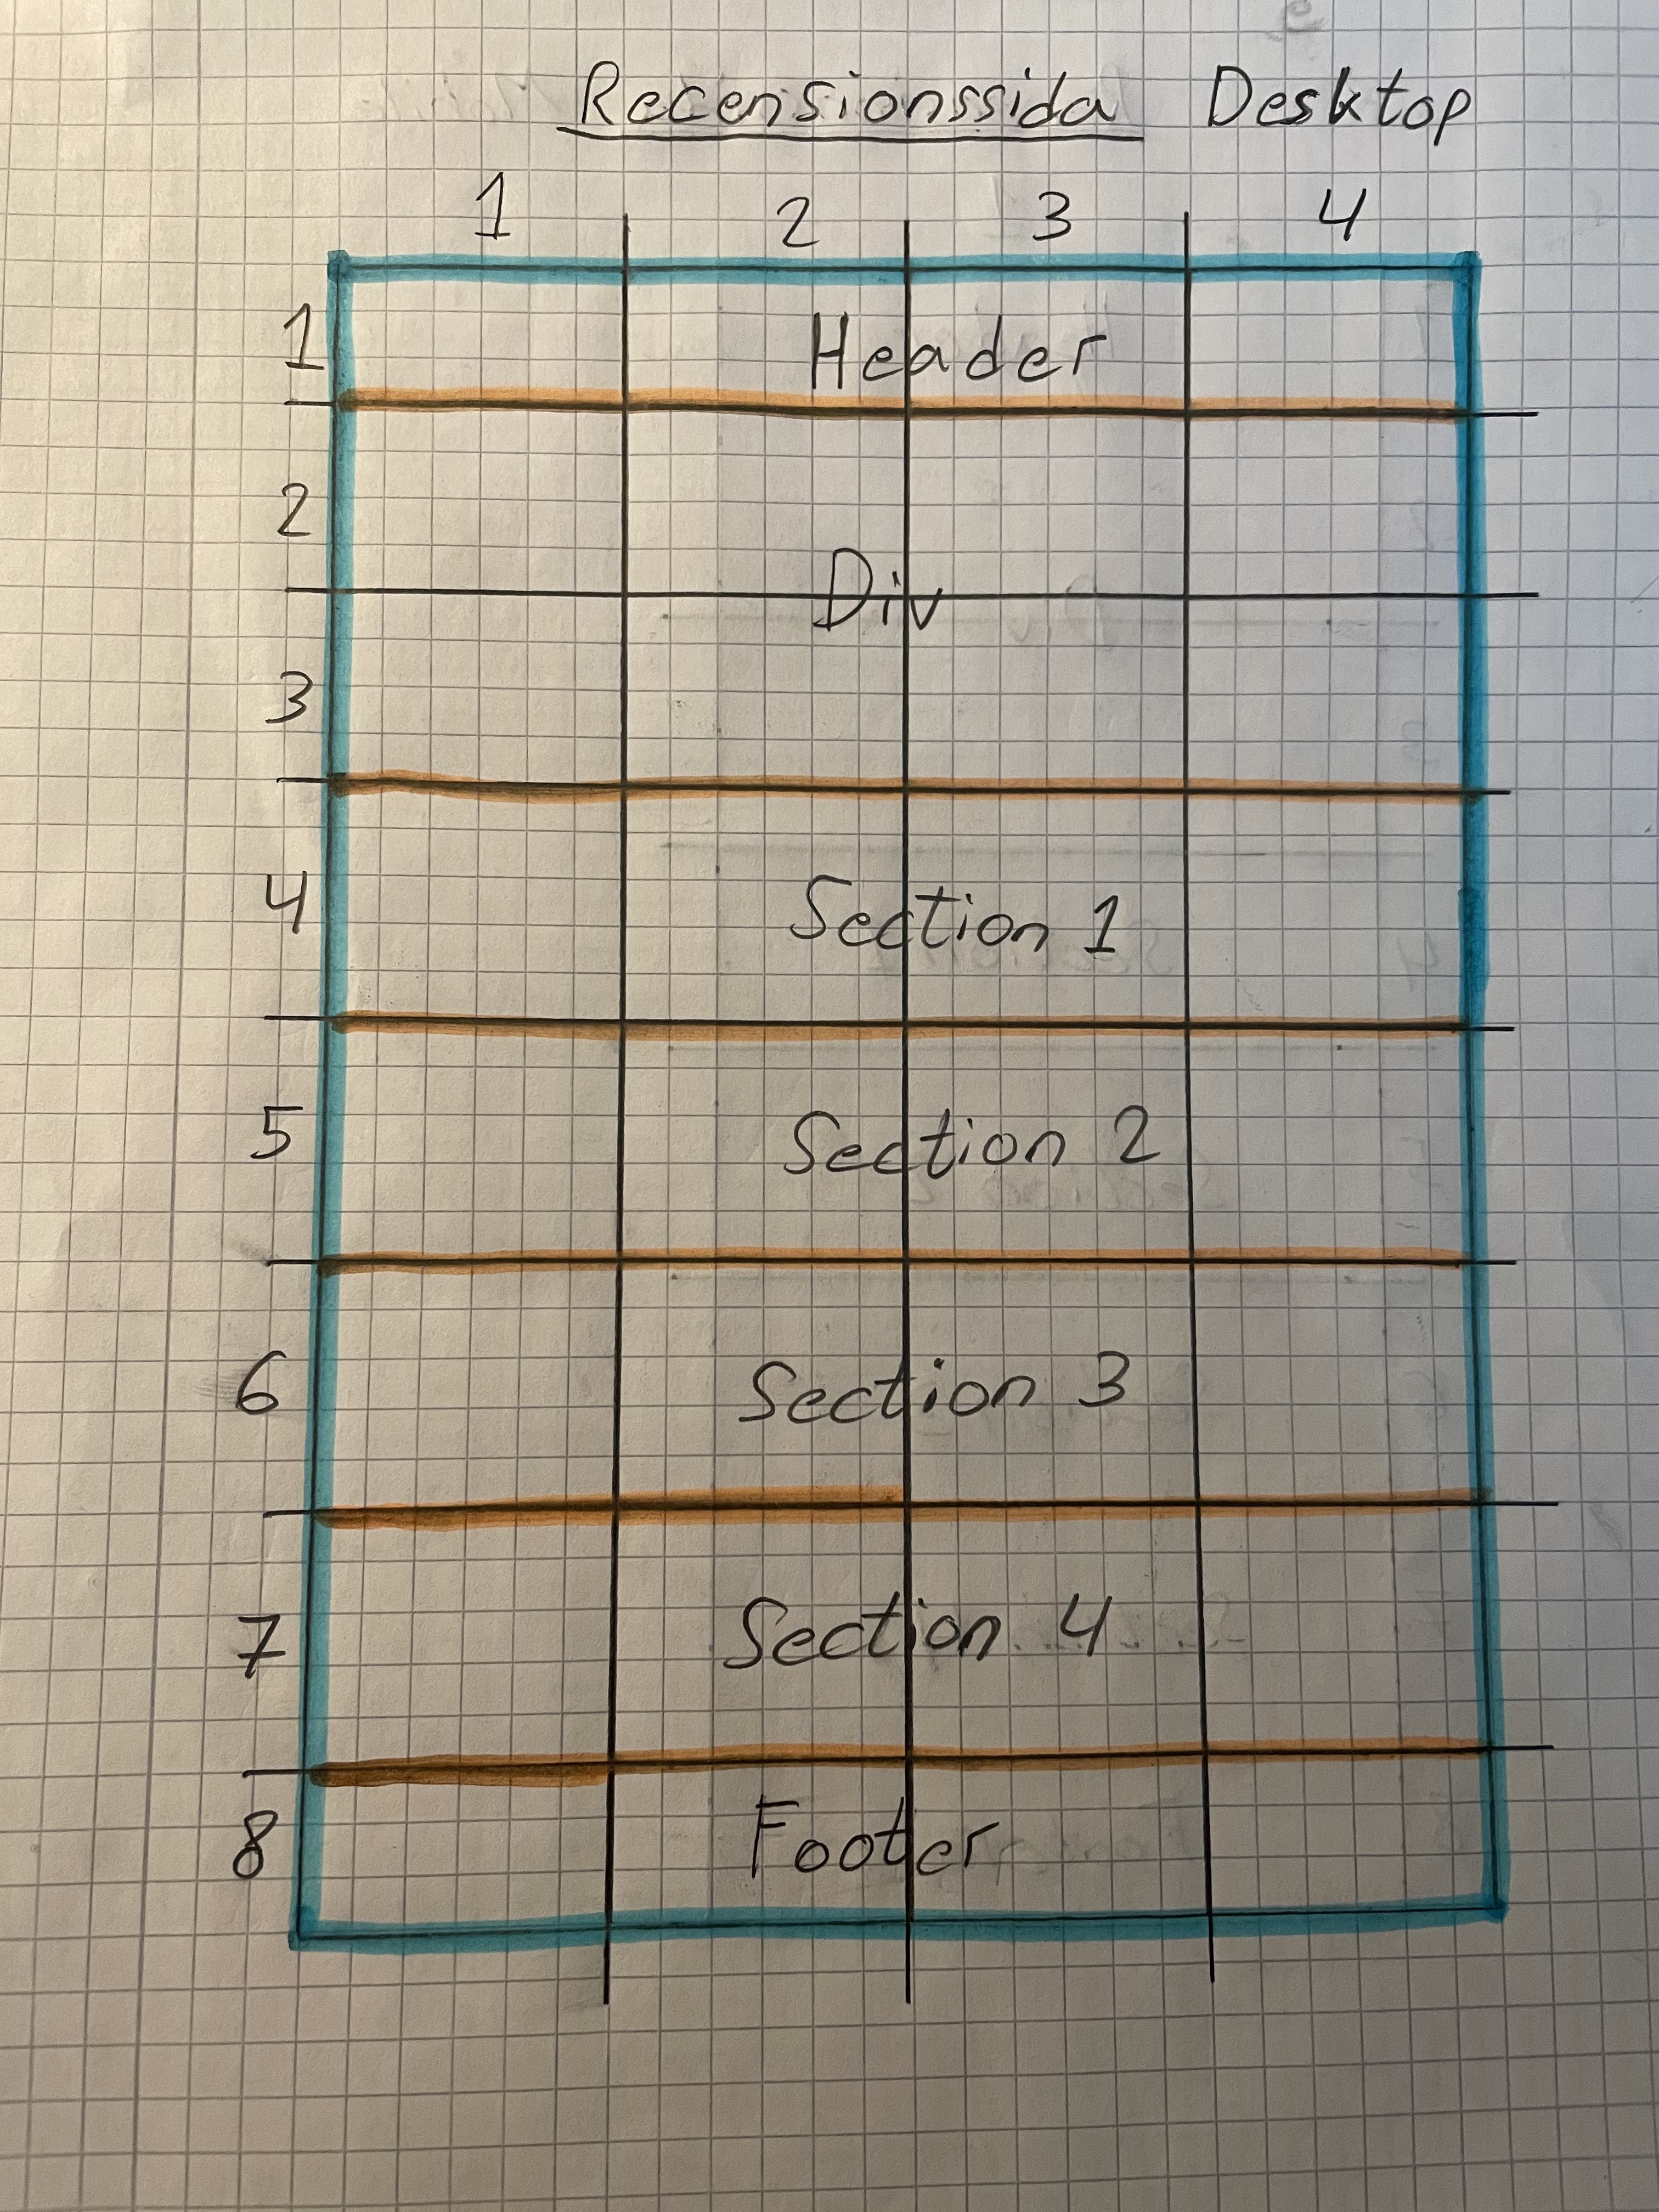 Recensionssida Desktop
1 2 3 4
1 Header
2
Div
3
4 Section 1
5 Section 2
6 Section 3
7 Section 4
8 Footer